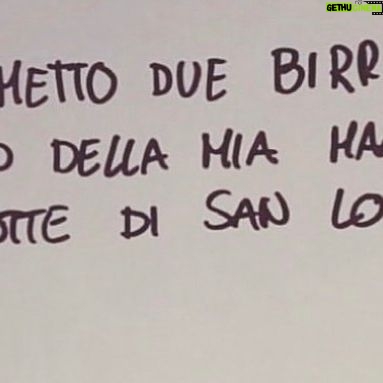 GETHU
METTO DUE BIRR
O DELLA MIA MA
OTTE DI SAN LO